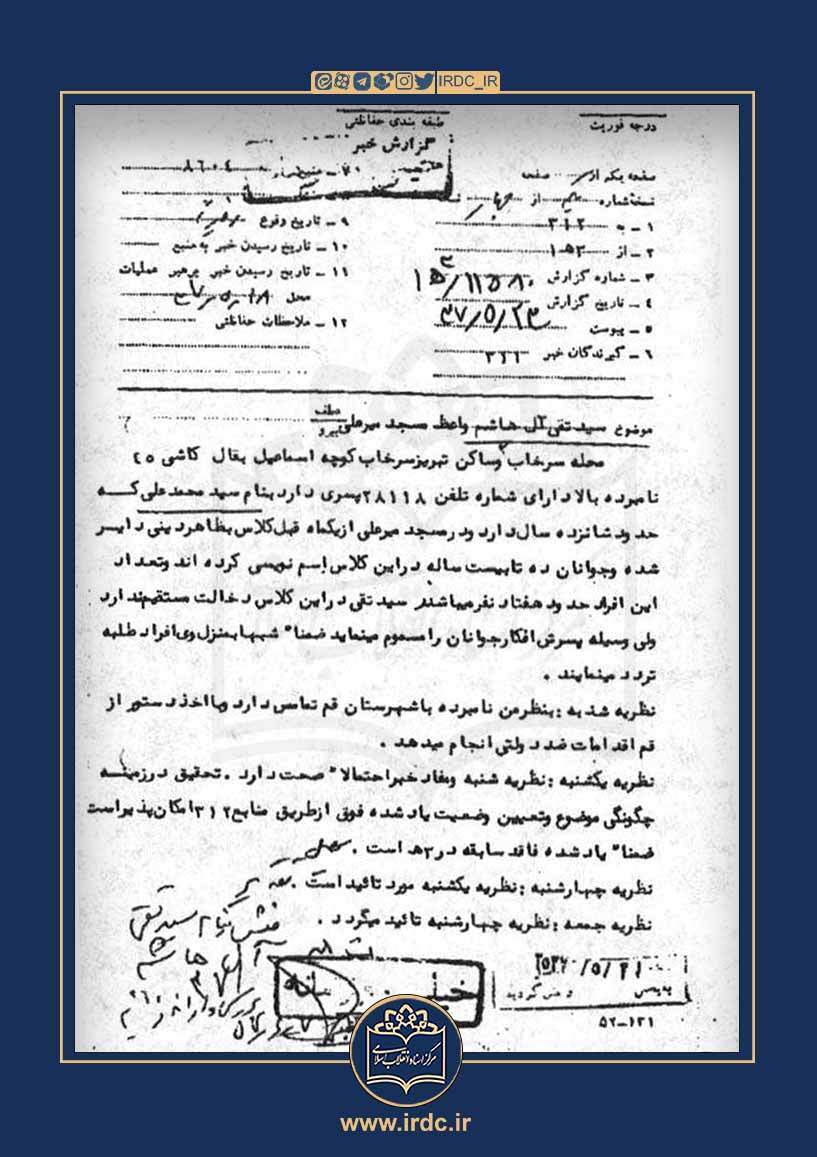 IRDC_IR
درجه فوریت
طبقه بندی حفاظتی
گزارش خبر
صفحه یکم از صفحه
نسخه شماره از چهار
۱ – به ۳۱۲
۲ – از ۱۵۳
۳ – شماره گزارش
۴ – تاریخ گزارش ۳۷/۵/۲۳
۵ – پیوست
۶ – گیرندگان خبر
۸۶۰۴
۹ – تاریخ وقوع
۱۰ – تاریخ رسیدن خبر به منبع
۱۱ – تاریخ رسیدن خبر برهبر عملیات
محل
۱۲ – ملاحظات حفاظتی
موضوع سید تقی آل هاشم واعظ مسجد میرعلی
محله سرخاب وساکن تبریز سرخاب کوچه اسماعیل بقال کاشی ۴۵
نامبرده بالا دارای شماره تلفن ۲۸۱۱۸ پسری دارد بنام سید محمدعلی که
حدود شانزده سال دارد ودر مسجد میرعلی از یکماه قبل کلاس بظاهر دینی دایر
شده وجوانان ده تابیست ساله دراین کلاس اسم نویسی کرده اند وتعداد
این افراد حدود هفتاد نفر میباشند سید تقی دراین کلاس دخالت مستقیم ندارد
ولی وسیله پسرش افکار جوانان را مسموم مینماید ضمنا" شبها بمنزل وی افراد طلبه
تردد مینمایند .
نظریه شنبه : بنظر من نامبرده با شهرستان قم تماس دارد وبا اخذ دستور از
قم اقدامات ضد دولتی انجام میدهد .
نظریه یکشنبه : نظریه شنبه ومفاد خبر احتمالا" صحت دارد . تحقیق درزمینه
چگونگی موضوع وتعیین وضعیت یاد شده فوق از طریق منابع ۳۱۲ امکان پذیر است
ضمنا" یاد شده فاقد سابقه در ۳ه است .
نظریه چهارشنبه : نظریه یکشنبه مورد تائید است .
نظریه جمعه : نظریه چهارشنبه تائید میگردد .
سید تقی
آل هاشم
۵۲–۱۳۱
مرکز اسناد انقلاب اسلامی
www.irdc.ir